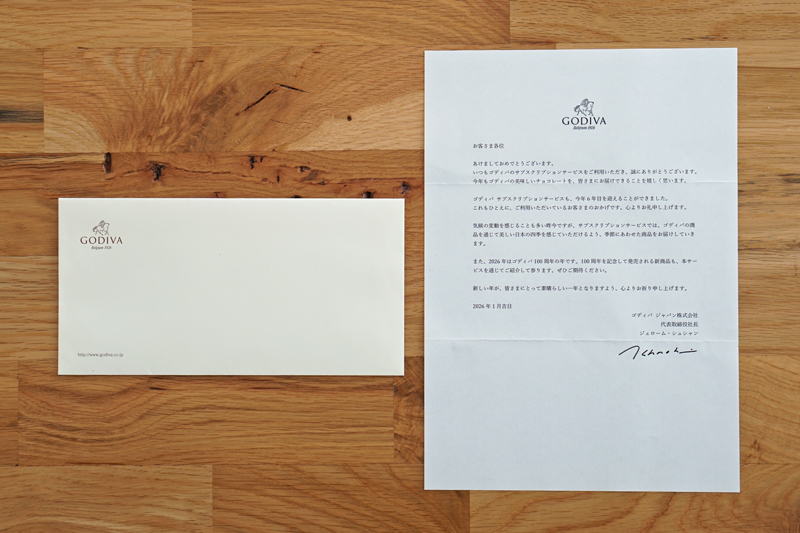 GODIVA
Belgium 1926
http://www.godiva.co.jp
GODIVA
Belgium 1926
お客さま各位
あけましておめでとうございます。
いつもゴディバのサブスクリプションサービスをご利用いただき、誠にありがとうございます。
今年もゴディバの美味しいチョコレートを、皆さまにお届けできることを嬉しく思います。
ゴディバ サブスクリプションサービスも、今年6年目を迎えることができました。
これもひとえに、ご利用いただいているお客さまのおかげです。心よりお礼申し上げます。
気候の変動を感じることも多い昨今ですが、サブスクリプションサービスでは、ゴディバの商
品を通じて美しい日本の四季を感じていただけるよう、季節にあわせた商品をお届けしていき
ます。
また、2026年はゴディバ100周年の年です。100周年を記念して発売される新商品も、本サー
ビスを通じてご紹介して参ります。ぜひご期待ください。
新しい年が、皆さまにとって素晴らしい一年となりますよう、心よりお祈り申し上げます。
2026年1月吉日
ゴディバ ジャパン株式会社
代表取締役社長
ジェローム・シュシャン